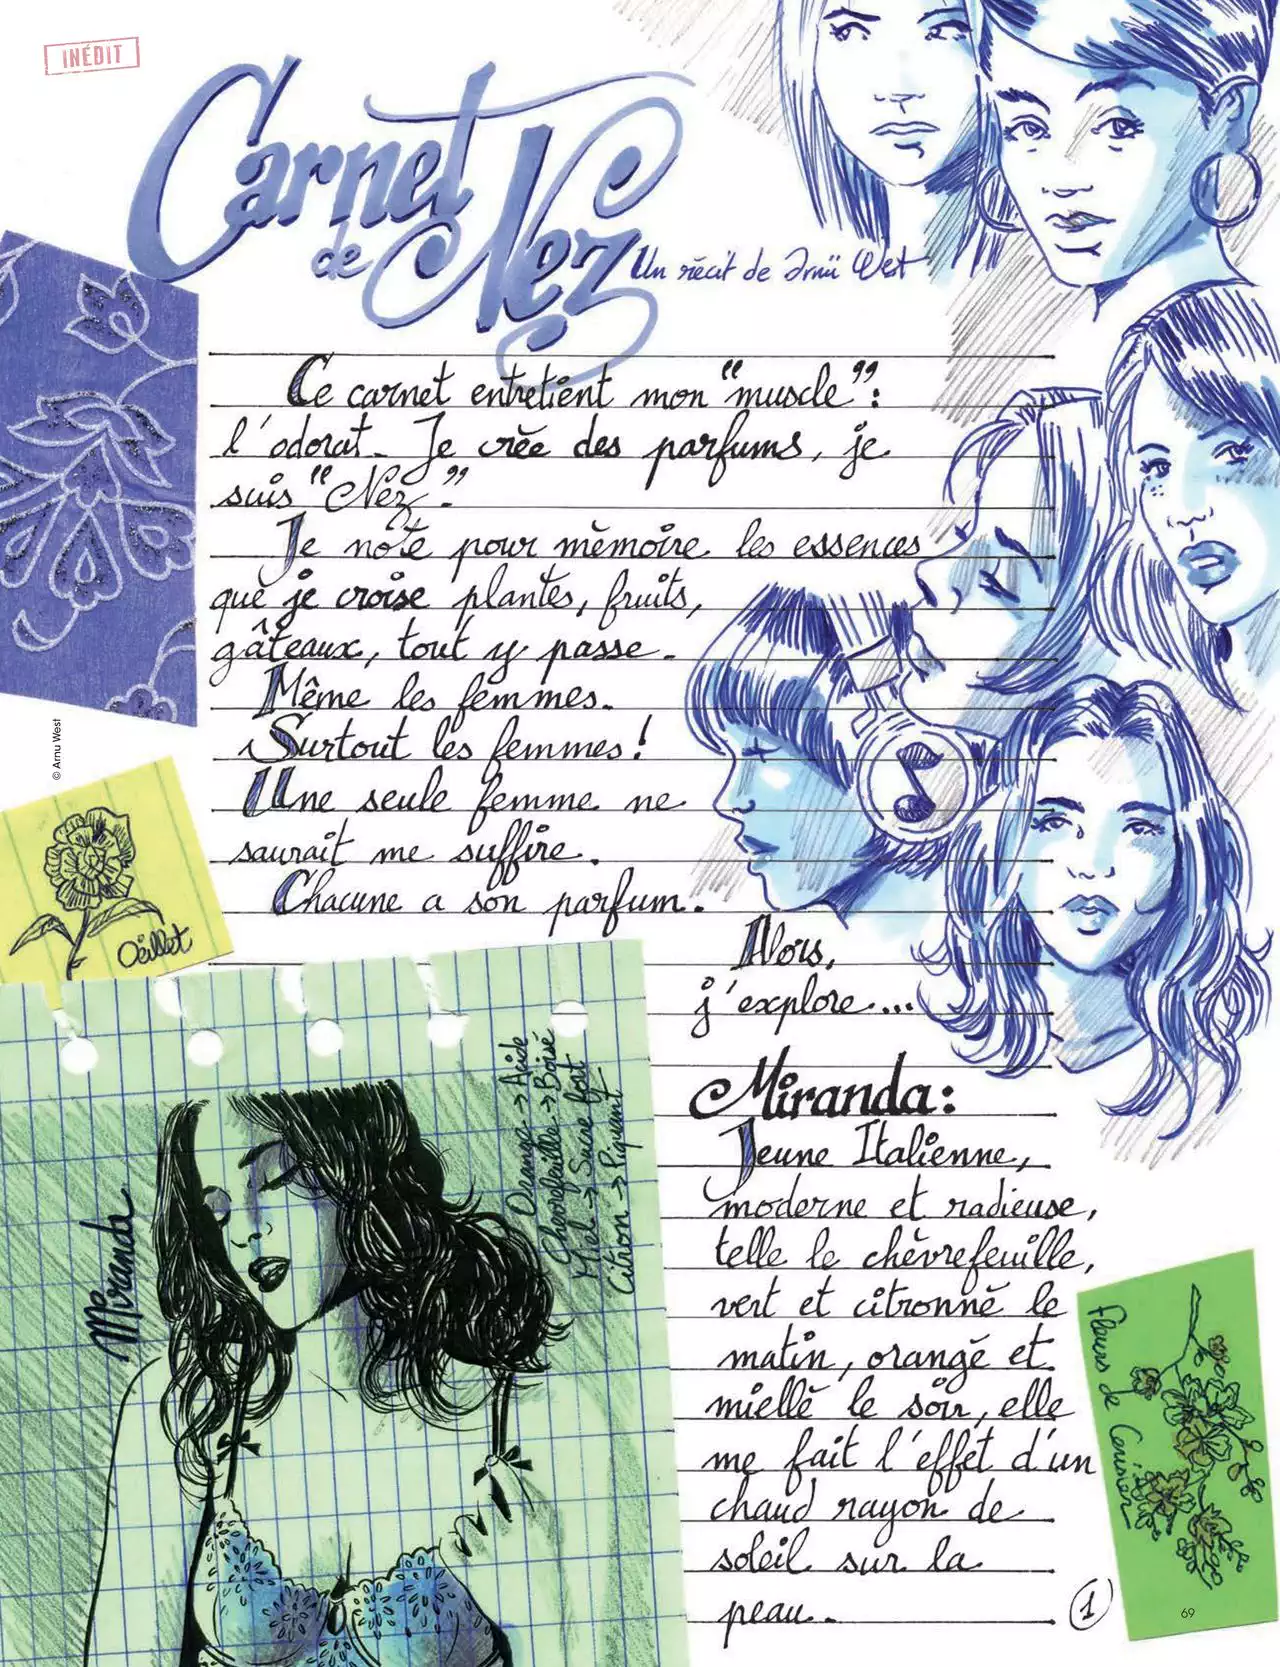 INÉDIT
Carnet
de Nez
Un récit de Arnü West
Ce carnet entretient mon "muscle":
l'odorat. Je crée des parfums, je
suis "Nez".
Je note pour mémoire les essences
que je croise plantes, fruits,
gâteaux, tout y passe.
Même les femmes.
Surtout les femmes!
Une seule femme ne
saurait me suffire.
Chacune a son parfum.
Alors,
j'explore...
© Arnu West
Oeillet
Miranda
Orange → Acide
Chèvrefeuille → Boisé
Miel → Sucre fort
Citron → Piquant
Miranda:
Jeune Italienne,
moderne et radieuse,
telle le chèvrefeuille,
vert et citronné le
matin, orangé et
miellé le soir, elle
me fait l'effet d'un
chaud rayon de
soleil sur la
peau.
Fleurs de Cerisier
1
69